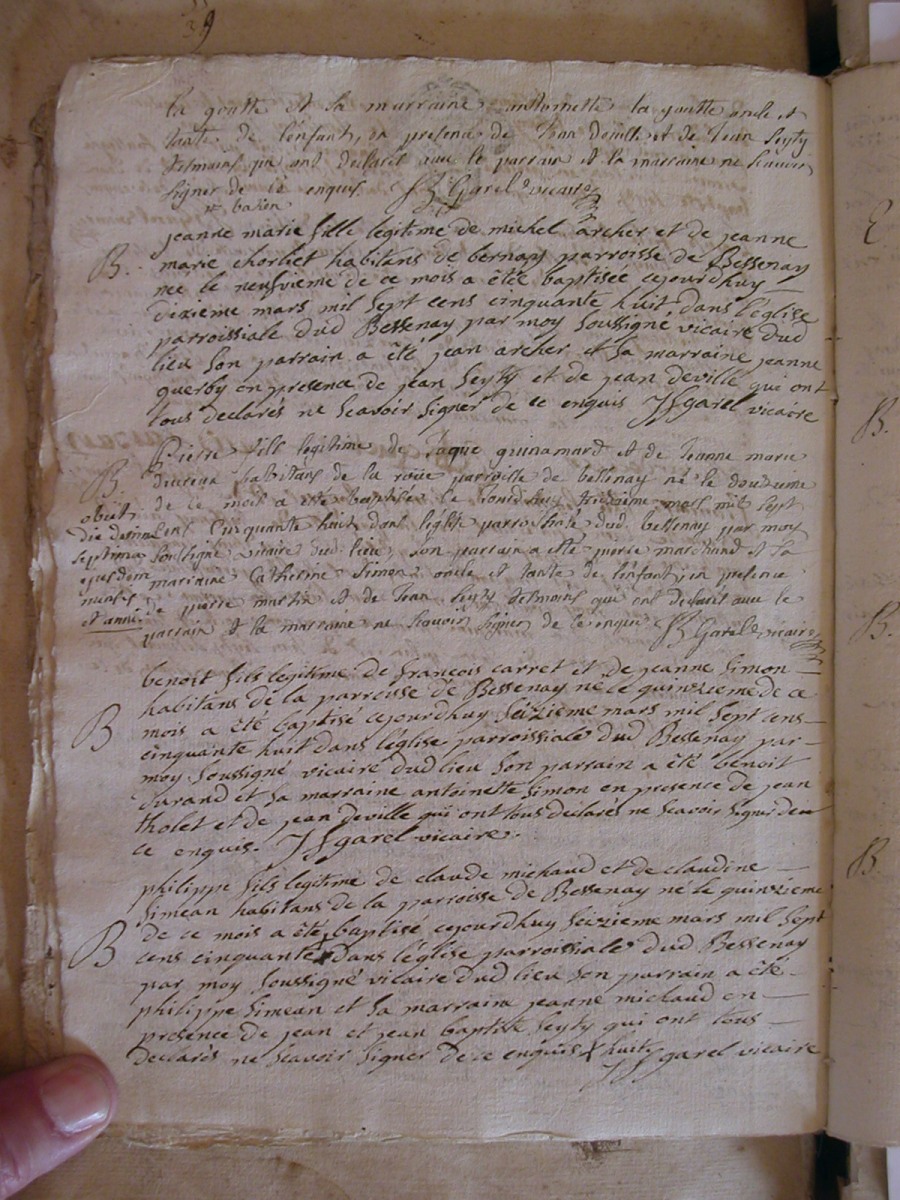 39
la goutte et sa marraine antoinette la goutte oncle et
tante de l'enfant, en presence de Jean deville et de Jean Seyty
temoins qui ont declaré avec le parrain et la marraine ne sçavoir
signer de ce enquis. garel vicaire
jeanne marie fille legitime de michel archer et de jeanne
B. marie chorliet habitans de bernay parroisse de Bessenay
née le neufvieme de ce mois a été baptisée cejourdhuy
dixieme mars mil sept cens cinquante huit, dans l'église
parroissiale dud Bessenay par moy soussigné vicaire dud
lieu son parrain a été jean archer et sa marraine jeanne
querby en presence de jean Seyty et de jean deville qui ont
tous declarés ne scavoir signer de ce enquis garel vicaire
Pierre fils legitime de Jaque guinamard et de Jeanne marie
B habitans de la roüe parroisse de bessenay né le douzieme
de ce mois a eté baptisé ce jourdhuy treizieme mars mil sept
cent cinquante huit dans l'église parroissiale dud. bessenay par moy
soussigné vicaire dud. lieu, son parrain a eté pierre marchand et sa
marraine Catherine Simon oncle et tante de l'enfant, en presence
de pierre martin et de Jean Seyty temoins qui ont declaré avec le
parrain et la marraine ne sçavoir signer de ce enquis garel vicaire
obiit
die decima
septima
ejusdem
mensis
et anni.
benoit fils legitime de francois carret et de jeanne simon
habitans de la parroisse de Bessenay né le quinzieme de ce
B mois a été baptisé cejourdhuy seizieme mars mil sept cens
cinquante huit dans l'église parroissiale dud Bessenay par
moy soussigné vicaire dud lieu son parrain a été benoit
durand et sa marraine antoinette simon en presence de jean
tholet et de jean deville qui ont tous declarés ne scavoir signer de
ce enquis. garel vicaire.
philippe fils legitime de claude michaud et de claudine
simean habitans de la parroisse de Bessenay né le quinzieme
B de ce mois a été baptisé cejourdhuy seizieme mars mil sept
cens cinquante dans l'église parroissiale dud Bessenay
par moy soussigné vicaire dud lieu son parrain a été
philippe simean et sa marraine jeanne michaud en
presence de jean et jean baptiste Seyty qui ont tous
declarés ne scavoir signer de ce enquis huit garel vicaire
B.
B.
B.